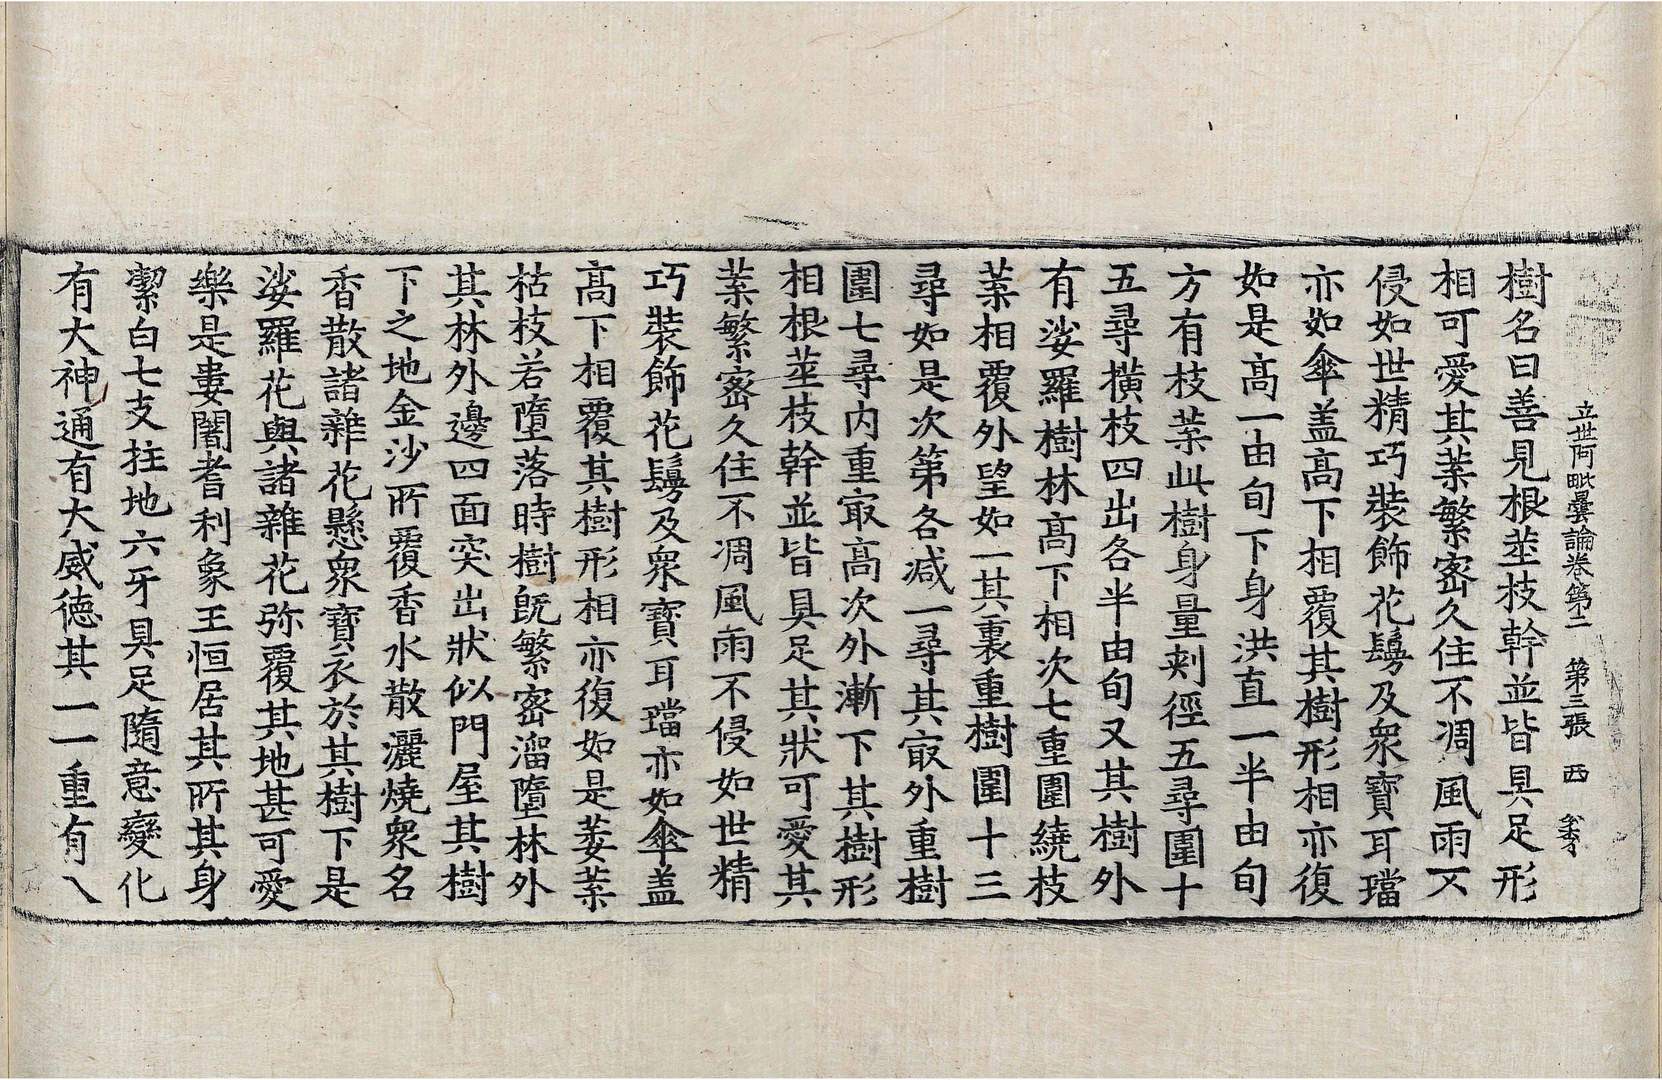 立世阿毗曇論卷第二 第三張 西
樹名曰善見根莖枝幹並皆具足形
相可愛其葉繁密久住不凋風雨不
侵如世精巧裝飾花鬘及衆寶耳璫
亦如傘盖高下相覆其樹形相亦復
如是高一由旬下身洪直一半由旬
方有枝葉此樹身量刺徑五尋圍十
五尋横枝四出各半由旬又其樹外
有娑羅樹林高下相次七重圍繞枝
葉相覆外望如一其裏重樹圍十三
尋如是次第各减一尋其㝡外重樹
圍七尋内重㝡高次外漸下其樹形
相根莖枝幹並皆具足其狀可愛其
葉繁密久住不凋風雨不侵如世精
巧裝飾花鬘及衆寶耳璫亦如傘盖
高下相覆其樹形相亦復如是萎葉
枯枝若墮落時樹旣繁密溜墮林外
其林外邊四面突出狀似門屋其樹
下之地金沙所覆香水散灑燒衆名
香散諸雜花懸衆寶衣於其樹下是
娑羅花與諸雜花弥覆其地甚可愛
樂是婁闍耆利象王恒居其所其身
潔白七支拄地六牙具足隨意變化
有大神通有大威德其一一重有八